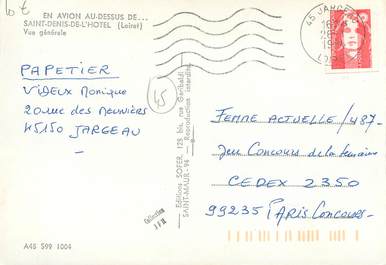 10 €
EN AVION AU-DESSUS DE...
SAINT-DENIS-DE-L'HOTEL (Loiret)
Vue générale
45 JARGEAU
PAPETIER
VIDEUX Monique
20 rue des Meuniers
45150 JARGEAU
45
Editions SOFER, 128 bis, rue Garibaldi
SAINT-MAUR-94 - Reproduction interdite
Collection
FEMME ACTUELLE / 487-
Jeu Concours de la semaine
CEDEX 2350
99235 PARIS CONCOURS
A45 S99 1004